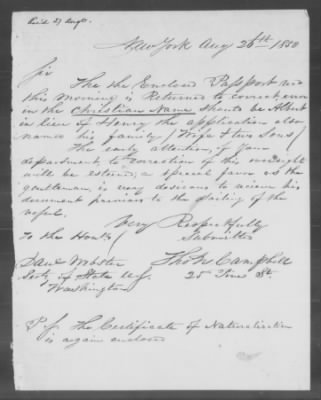 Recd 27 Augt.
New York Aug 26th 1850
Sir
The the Enclosed Passport
this morning is Returned to correct, error
in the Christian Name should be Albert
in lieu of Henry the application also
names his family / Wife & two Sons /
The early attention, of Your
department, to correction of this oversight
will be esteemed, a special favor as the
gentleman, is very desirous to recieve his
document previous to the Sailing of the
vessel.
Very Respectfully
To the Honb. Submitted
Danl Webster Thos M Campbell
Secty of State U.S. 25 Pine St.
Washington
P.S. The Certificate of Naturalization
is again enclosed